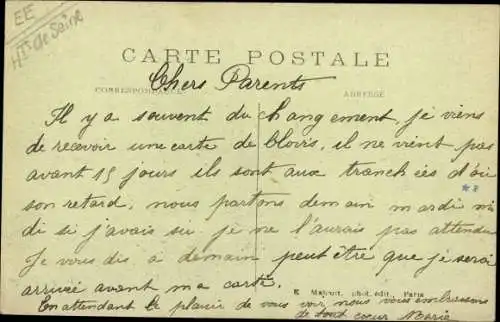 EE
Hts de Seine
CARTE POSTALE
Chers Parents
CORRESPONDANCE ADRESSE
Il y a souvent du changement, je viens
de recevoir une carte de blois, il ne vient pas
avant 15 jours ils sont aux tranchées d'où
son retard, nous partons demain mardi mi
di si j'avais su je ne l'aurais pas attendu
Je vous dis à demain peut être que je serai
E. Malcuit, phot. édit., Paris
arrivée avant ma carte.
En attendant le plaisir de vous voir, nous vous embrassons
de tout cœur Marie